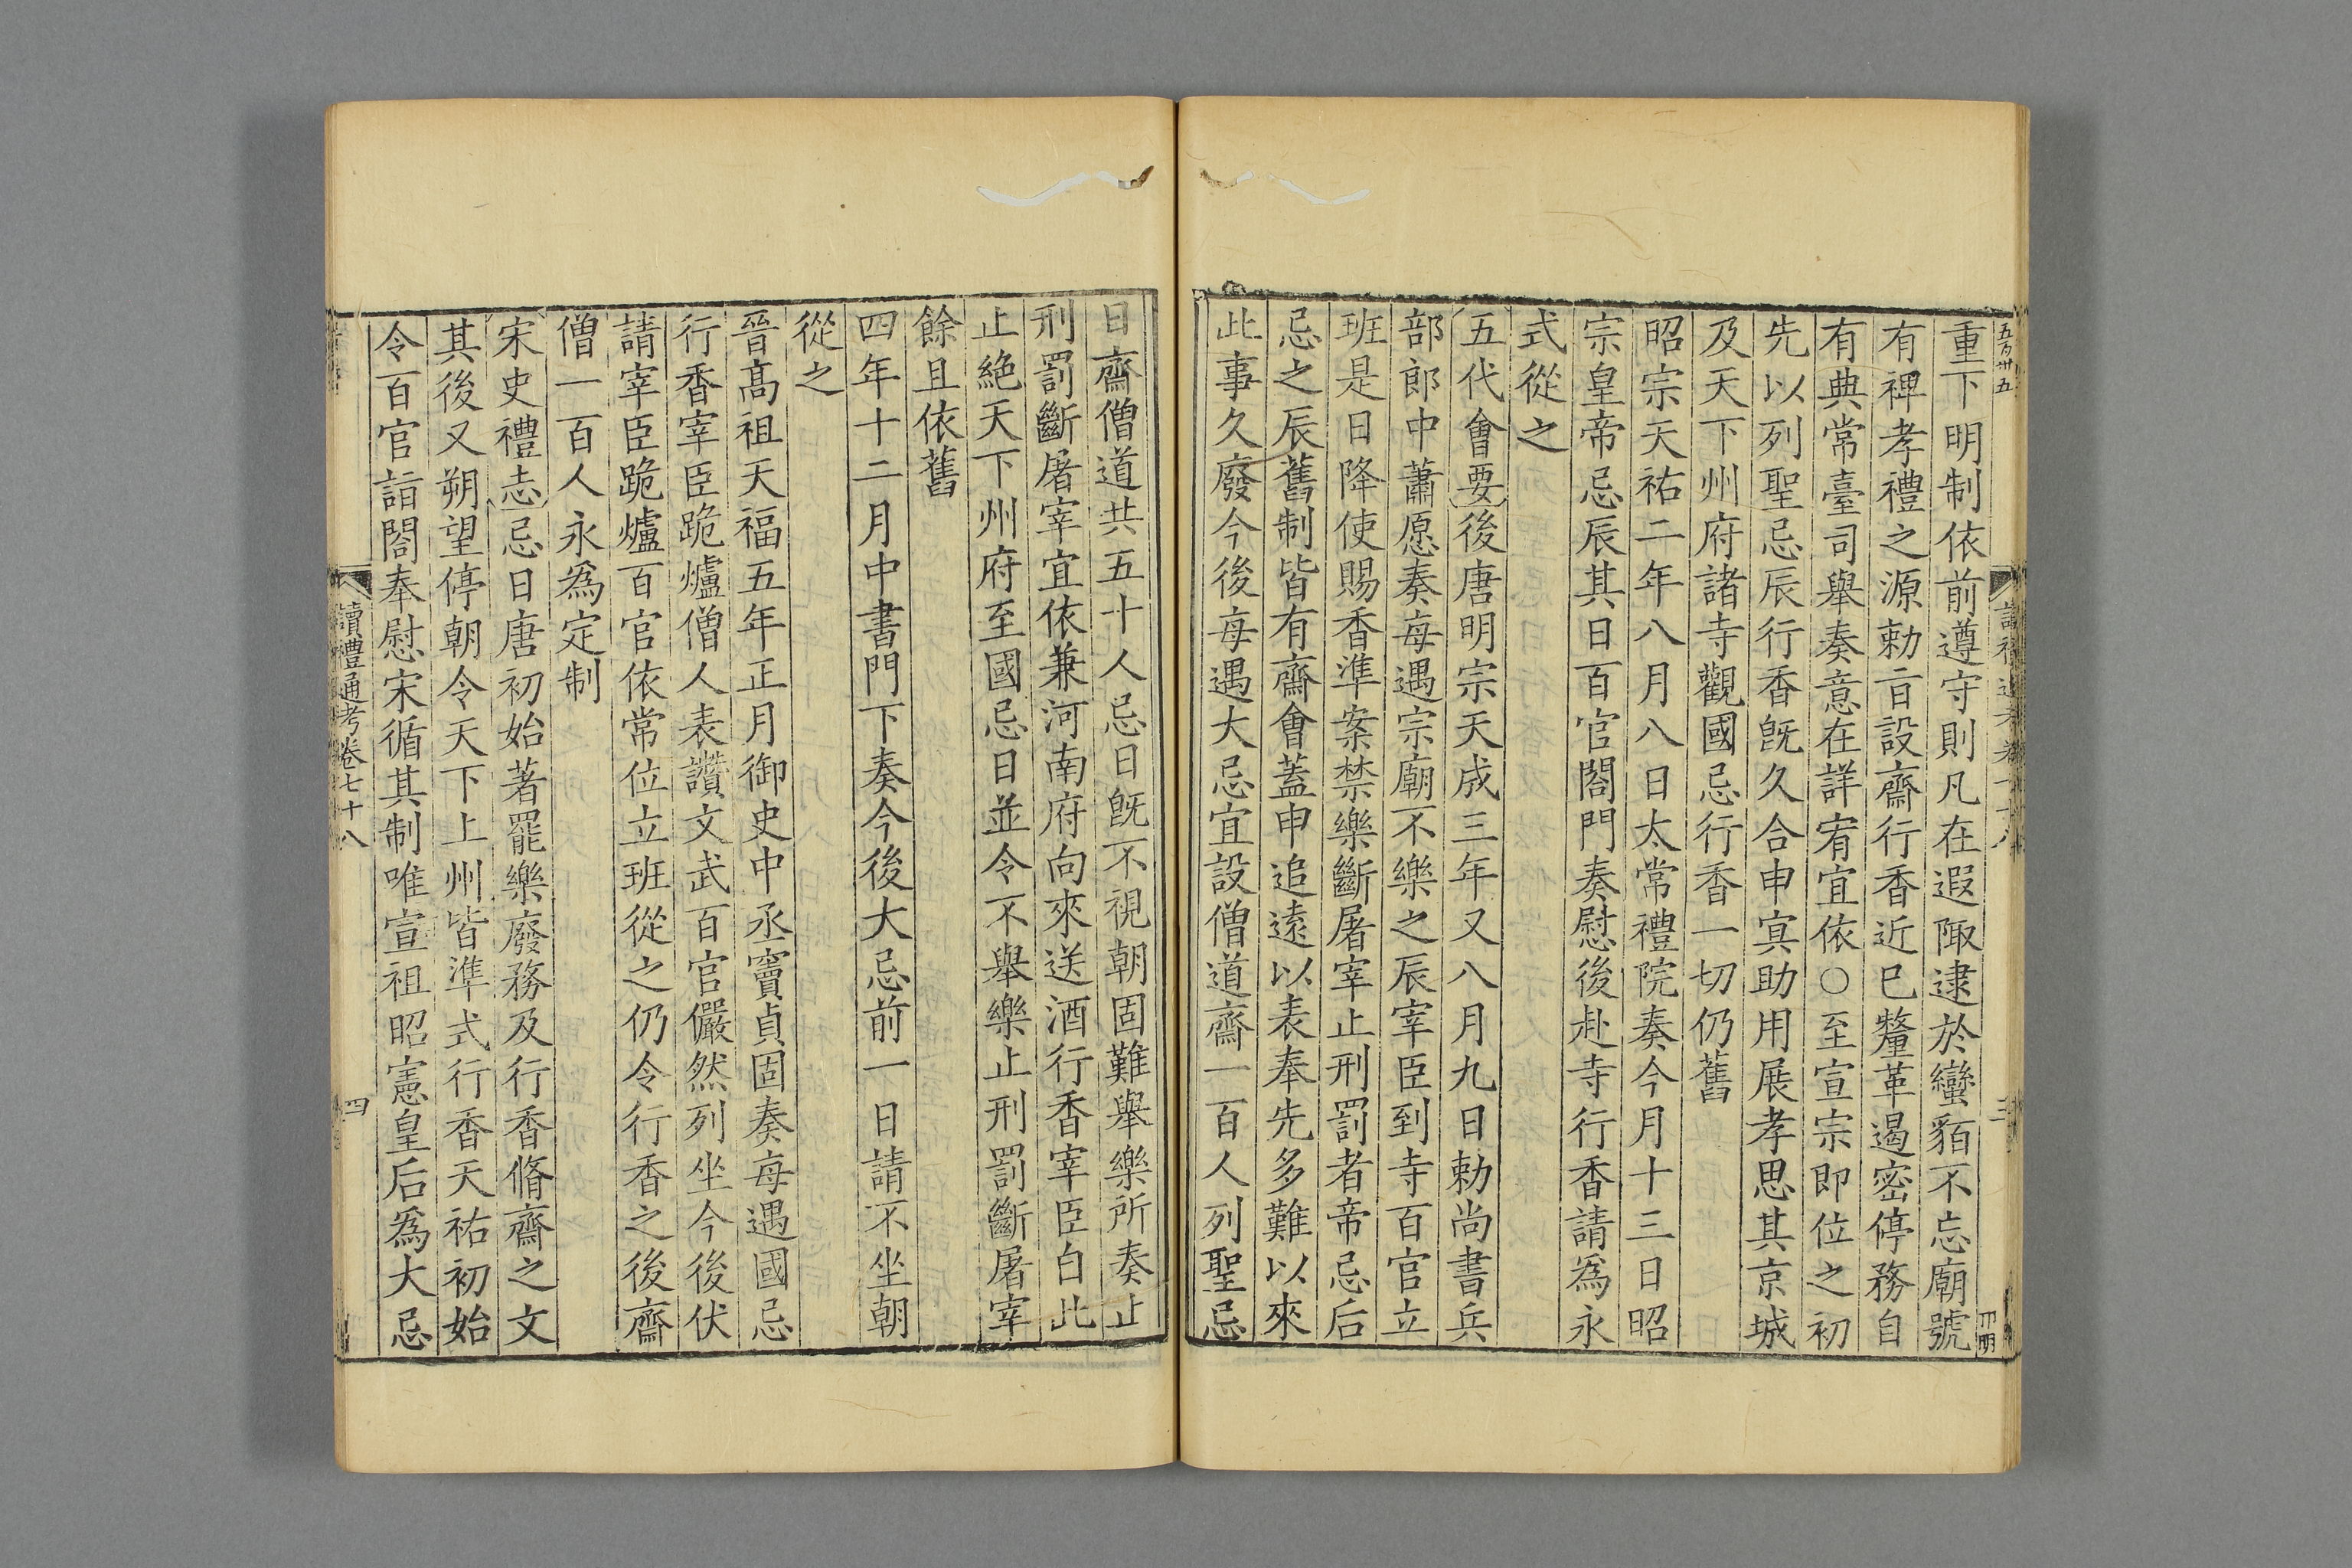 重下明制依前遵守則凡在遐陬逮於蠻貊不忘廟號
有禆孝禮之源勅旨設齋行香近已釐革遏密停務自
有典常臺司舉奏意在詳宥宜依○至宣宗即位之初
先以列聖忌辰行香旣久合申寘助用展孝思其京城
及天下州府諸寺觀國忌行香一切仍舊
昭宗天祐二年八月八日太常禮院奏今月十三日昭
宗皇帝忌辰其日百官閤門奏慰後赴寺行香請爲永
式從之
五代會要後唐明宗天成三年又八月九日勅尚書兵
部郎中蕭愿奏每遇宗廟不樂之辰宰臣到寺百官立
班是日降使賜香準案禁樂斷屠宰止刑罰者帝忌后
忌之辰舊制皆有齋會蓋申追遠以表奉先多難以來
此事久廢今後每遇大忌宜設僧道齋一百人列聖忌
日齋僧道共五十人忌日旣不視朝固難舉樂所奏止
刑罰斷屠宰宜依兼河南府向來送酒行香宰臣白此
止絶天下州府至國忌日並令不舉樂止刑罰斷屠宰
餘且依舊
四年十二月中書門下奏今後大忌前一日請不坐朝
從之
晉髙祖天福五年正月御史中丞竇貞固奏每遇國忌
行香宰臣跪爐僧人表讚文武百官儼然列坐今後伏
請宰臣跪爐百官依常位立班從之仍令行香之後齋
僧一百人永爲定制
宋史禮志忌日唐初始著罷樂廢務及行香脩齋之文
其後又朔望停朝令天下上州皆準式行香天祐初始
令百官詣閤奉慰宋循其制唯宣祖昭憲皇后爲大忌
讀禮通考卷七十八
四